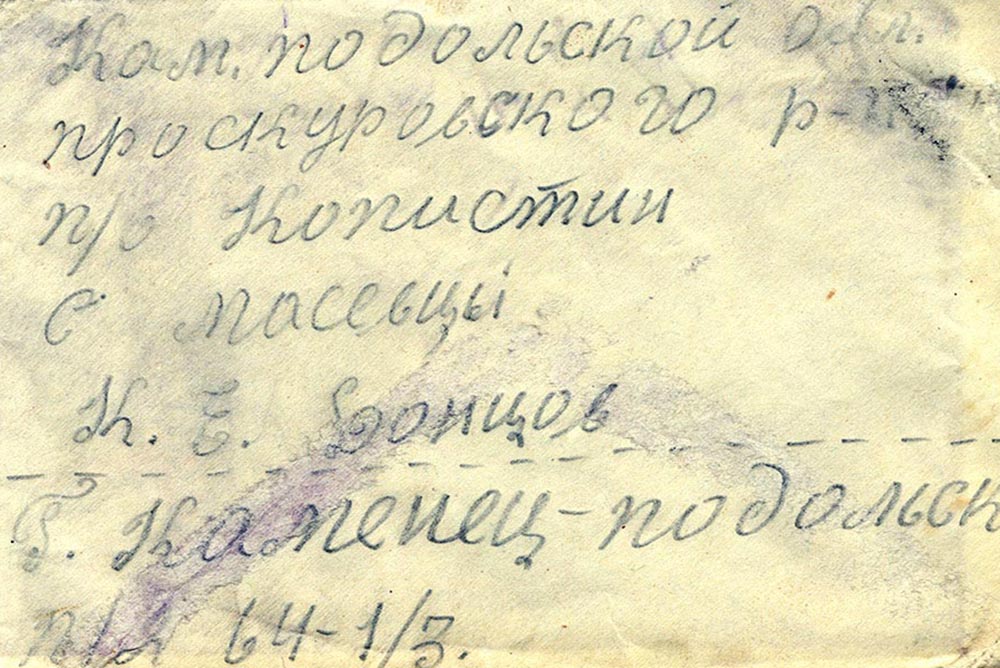 Кам. подольской обл.
проскуровского р-н
п/о Копистин
с масевцы
К. Е. Донцов
Г. Каменец-подольск
п/я 64-1/3.